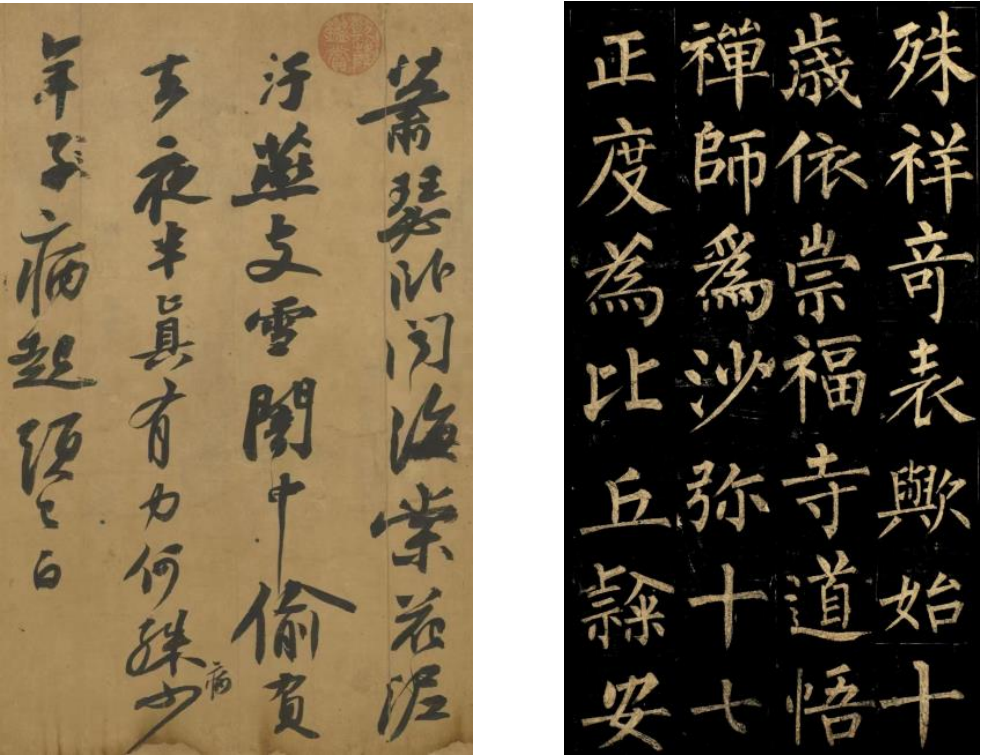 蕭瑟卧聞海棠花泥
汙燕支雪闇中偷負
去夜半真有力何殊病少
年子病起頭已白
殊祥奇表歟始十
歲依崇福寺道悟
禪師爲沙弥十七
正度為比丘隸安